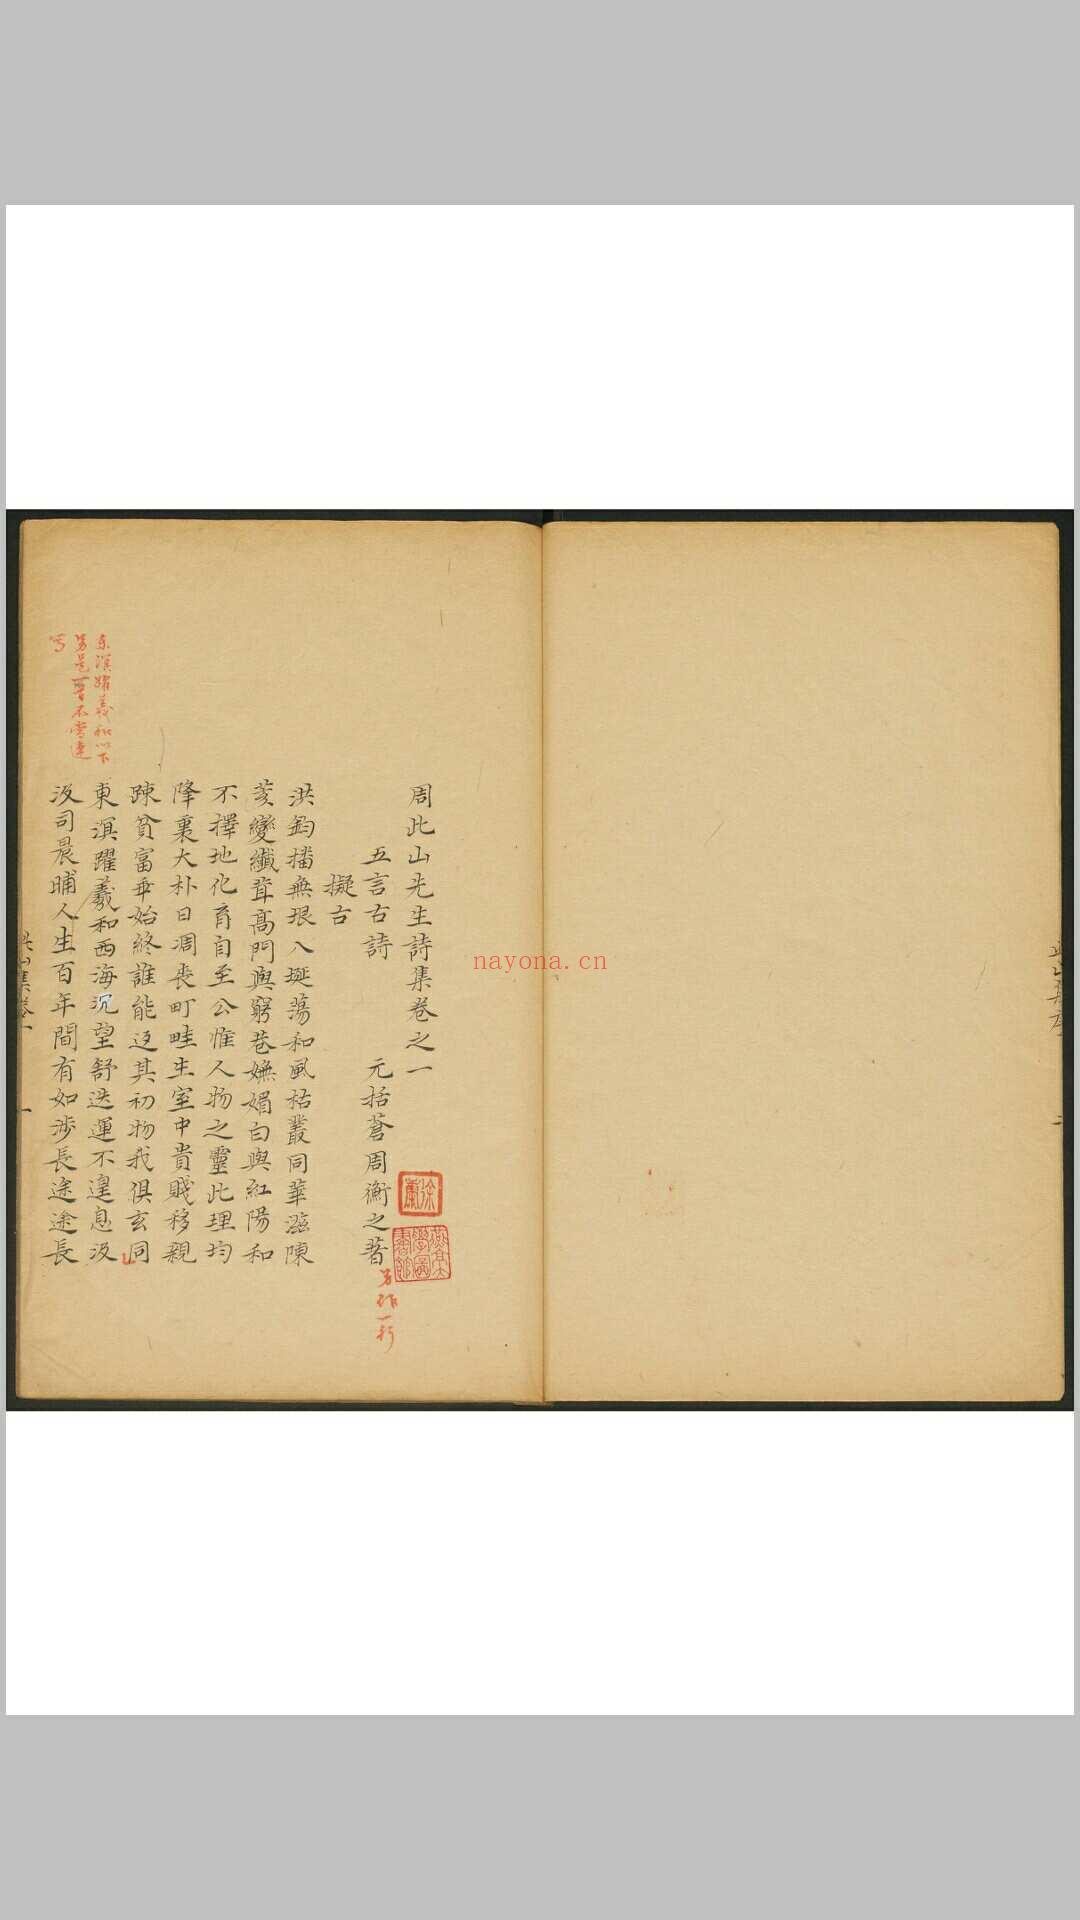 周此山先生詩集卷之一
五言古詩 元括蒼周衡之著
另作一行
擬古
洪鈞播無垠八埏蕩和風枯叢同華滋陳
荄變纖茸高門與窮巷嫵媚白與紅陽和
不擇地化育自至公惟人物之靈此理均
降衷大朴日凋喪町畦生室中貴賤移親
踈貧富乖始終誰能返其初物我俱玄同
東溟躍羲和西海沉望舒迭運不遑息汲
汲司晨晡人生百年間有如涉長途途長
东溟躍羲和以下
另是一首不當連
写
nayona.cn